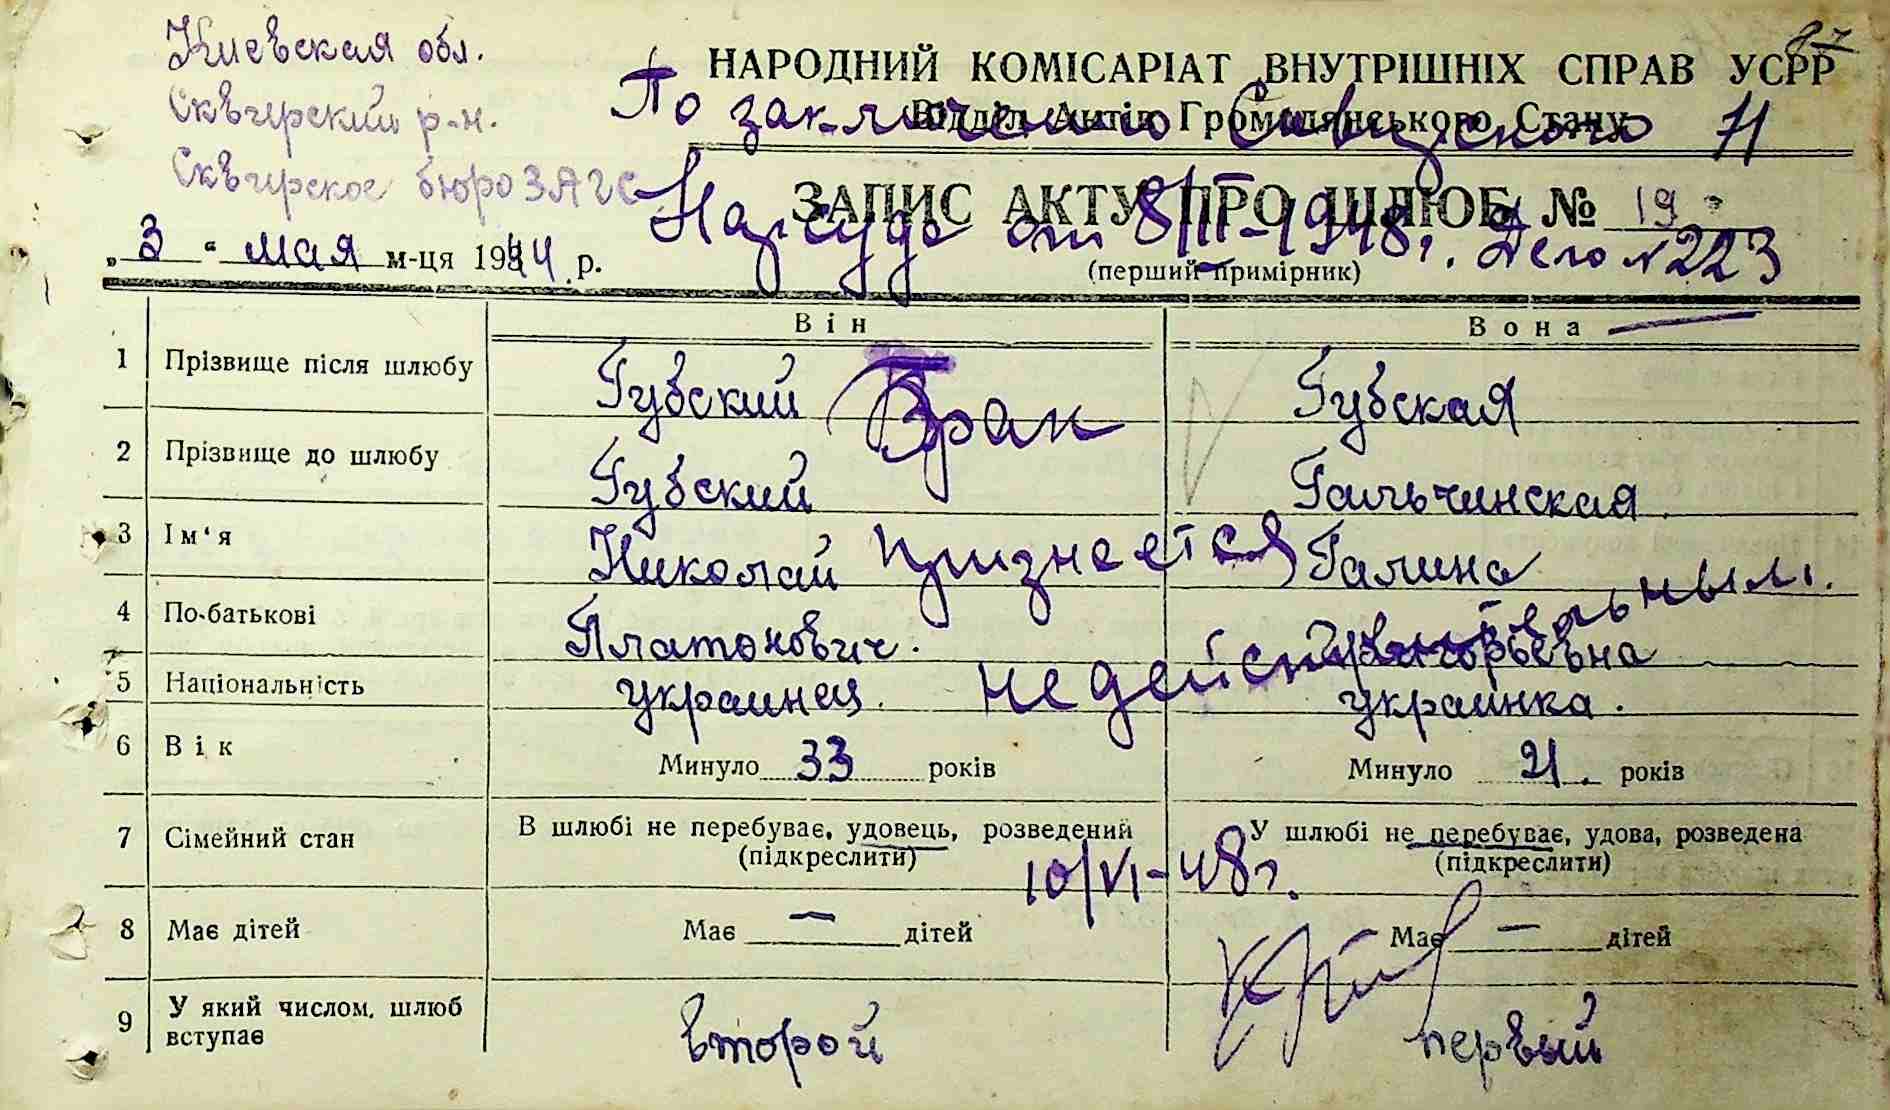 87
Киевская обл.
Сквирский р-н.
Сквирское бюро ЗАГС
НАРОДНИЙ КОМІСАРІАТ ВНУТРІШНІХ СПРАВ УСРР
Відділ Актів Громадянського Стану
По заключению Сквирского Н
ЗАПИС АКТУ ПРО ШЛЮБ № 19
Нарсуда от 8/III-1948г. Дело №223
(перший примірник)
„3“ мая м-ця 1944 р.
Він Вона
1 Прізвище після шлюбу Губский Губская
Брак
2 Прізвище до шлюбу Губский Гальчинская
3 Ім'я Николай Галина
признается
4 По-батькові Платонович. Григорьевна
недействительным.
5 Національність украинец. украинка.
6 Вік Минуло 33 років Минуло 21. років
7 Сімейний стан В шлюбі не перебуває, удовець, розведений У шлюбі не перебуває, удова, розведена
(підкреслити) (підкреслити)
10/VI-48г.
8 Має дітей Має — дітей Має — дітей
9 У який числом, шлюб вступає второй первый